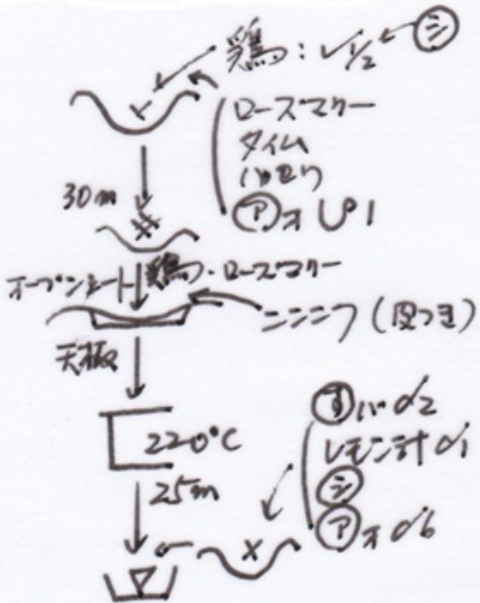 鶏: 1/2 ← シ
ローズマリー
タイム
パセリ
ア オ
30m
オーブンシート 鶏・ローズマリー
ニンニク (皮つき)
天板
220°C
25m
す バ 2
レモン汁 1
シ
ア オ 6